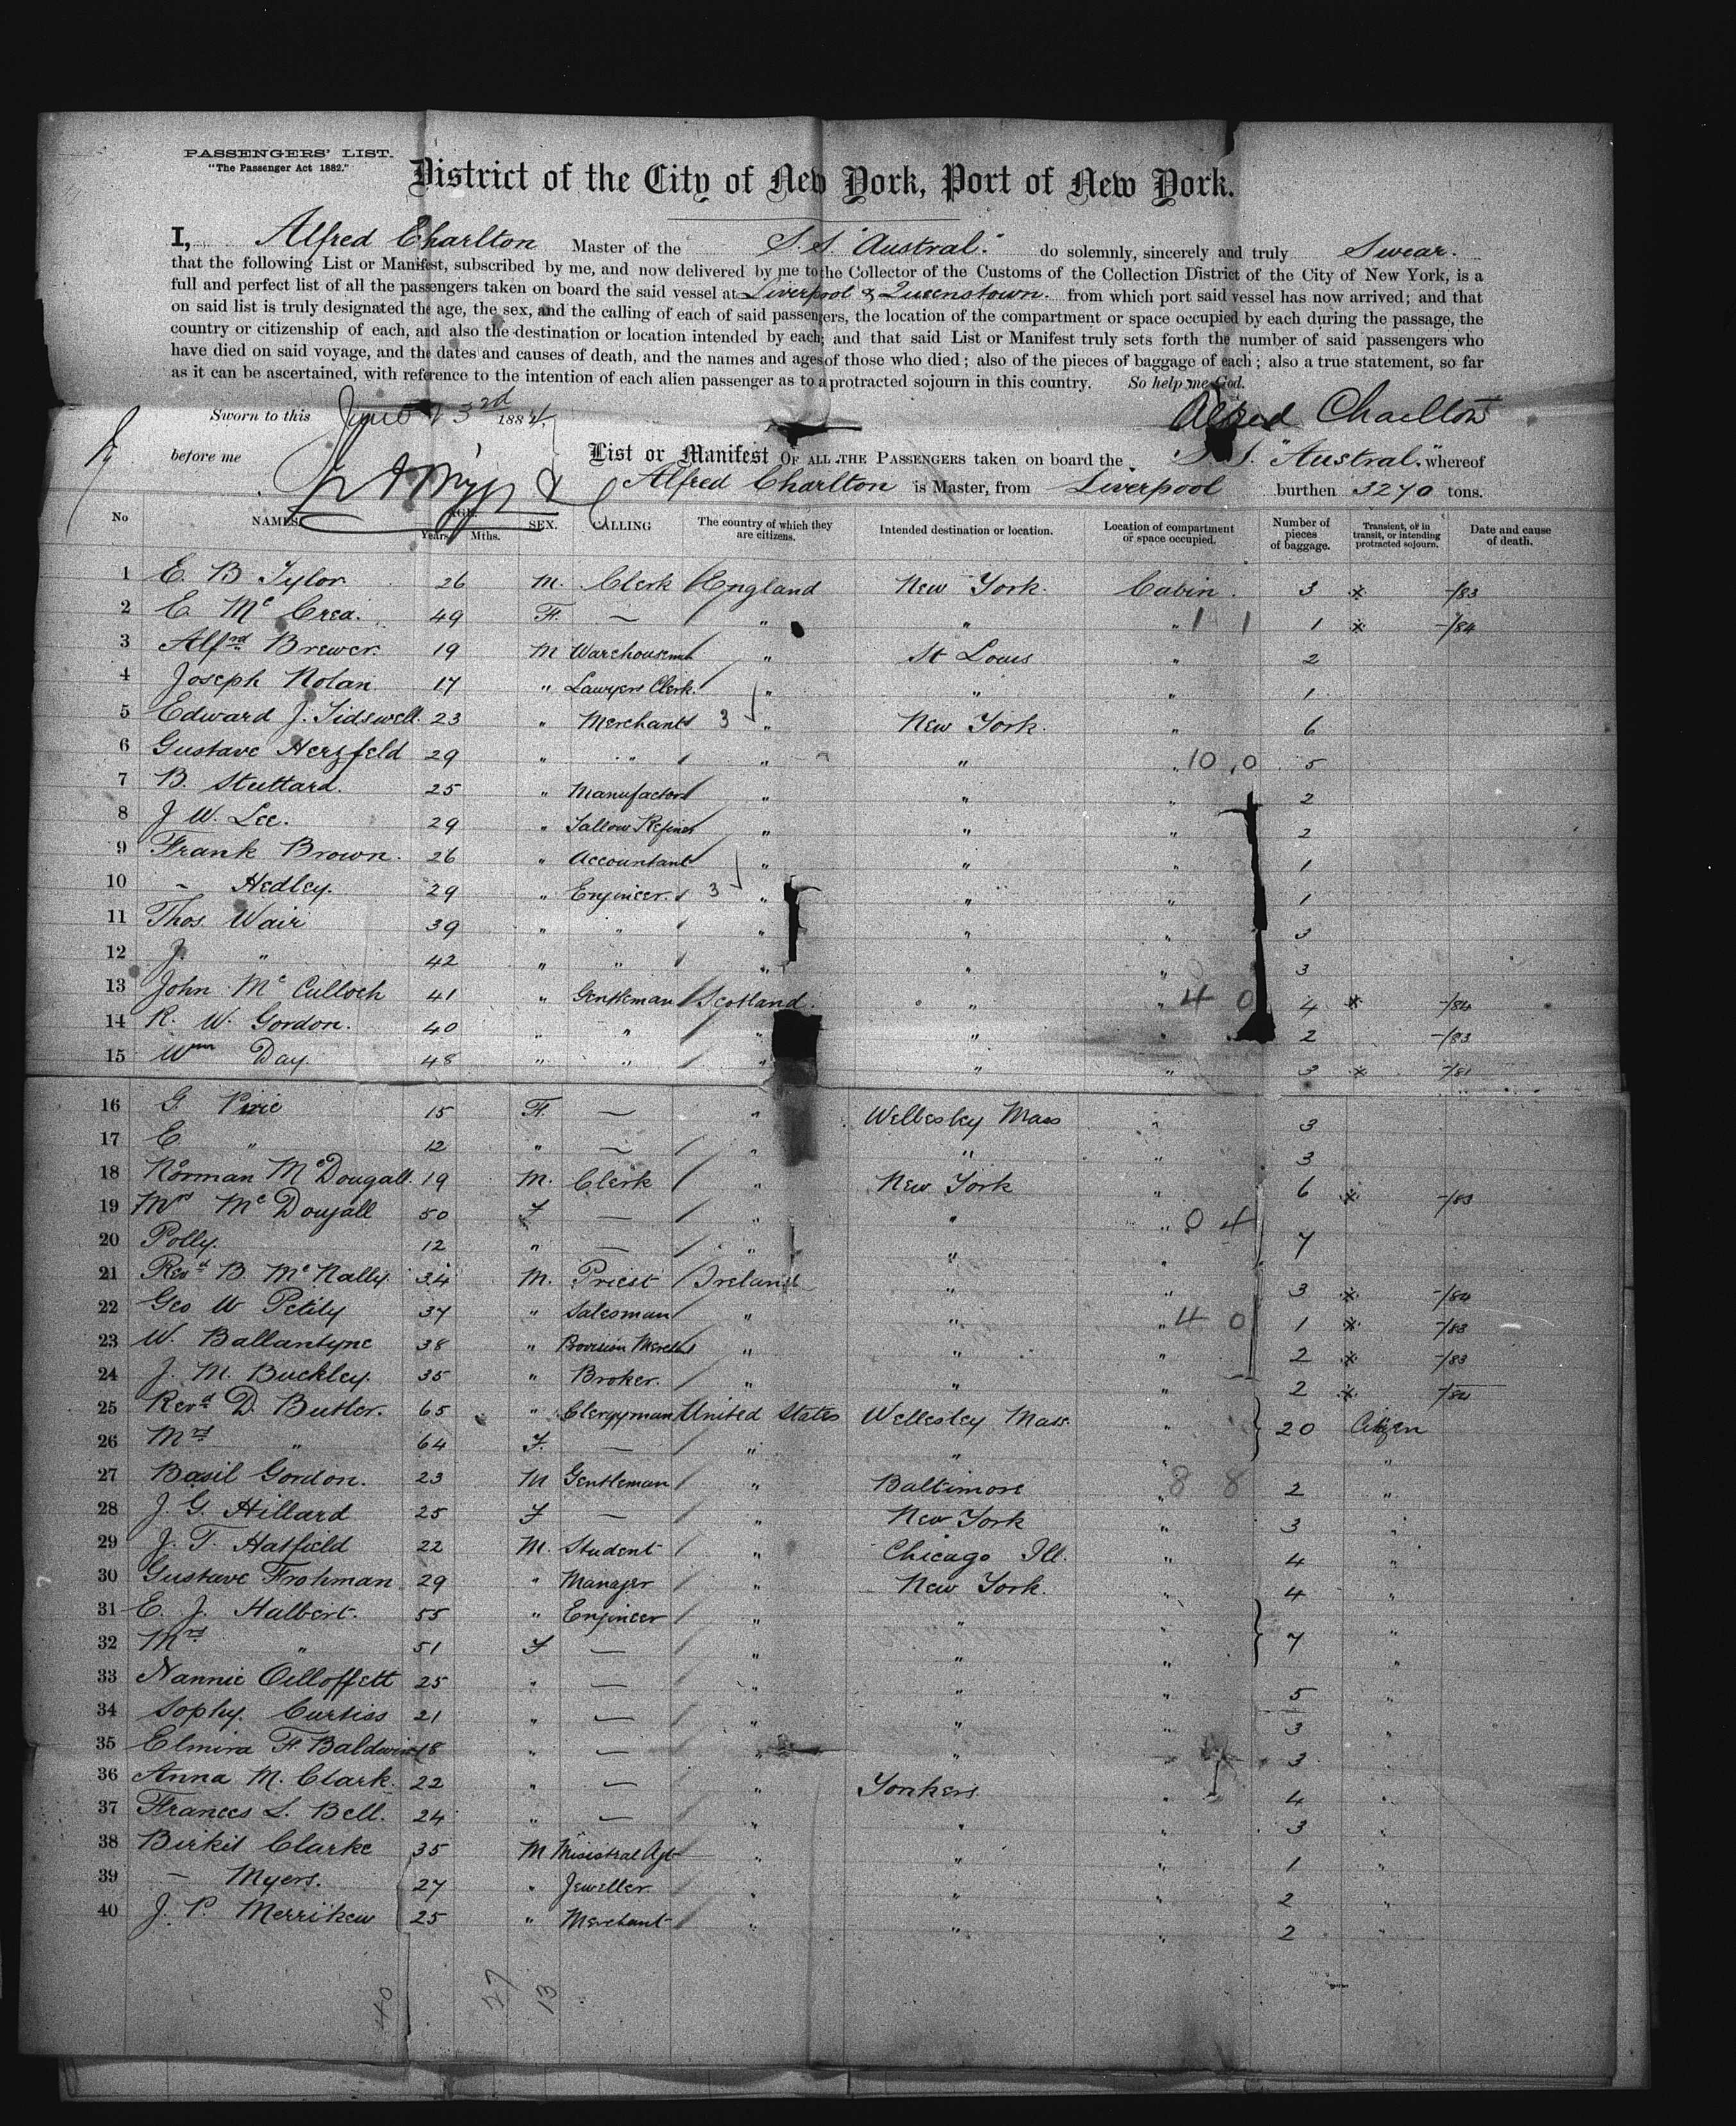 PASSENGERS' LIST.
"The Passenger Act 1882."
District of the City of New York, Port of New York.
I, Alfred Charlton Master of the S.S. "Austral." do solemnly, sincerely and truly Swear.
that the following List or Manifest, subscribed by me, and now delivered by me to the Collector of the Customs of the Collection District of the City of New York, is a
full and perfect list of all the passengers taken on board the said vessel at Liverpool & Queenstown. from which port said vessel has now arrived; and that
on said list is truly designated the age, the sex, and the calling of each of said passengers, the location of the compartment or space occupied by each during the passage, the
country or citizenship of each, and also the destination or location intended by each; and that said List or Manifest truly sets forth the number of said passengers who
have died on said voyage, and the dates and causes of death, and the names and ages of those who died; also of the pieces of baggage of each; also a true statement, so far
as it can be ascertained, with reference to the intention of each alien passenger as to a protracted sojourn in this country. So help me God.
Sworn to this June 23rd 1884. Alfred Charlton
before me
List or Manifest OF ALL THE PASSENGERS taken on board the S.S. "Austral." whereof
Alfred Charlton is Master, from Liverpool burthen 3270 tons.
No NAMES. AGE. Years. Mths. SEX. CALLING The country of which they are citizens. Intended destination or location. Location of compartment or space occupied. Number of pieces of baggage. Transient, or in transit, or intending protracted sojourn. Date and cause of death.
1 E. B Tylor 26 M. Clerk England New York. Cabin. 3 * -/83
2 E. Mc Crea. 49 F. — " " " 1 1 1 * -/84
3 Alfrd Brewer 19 M Warehousemn " St Louis " 2
4 Joseph Nolan 17 " Lawyers Clerk. " " " 1
5 Edward J. Tidswell. 23 " Merchant 3 " New York. " 6
6 Gustave Herzfeld 29 " " " " " 10 0 5
7 B. Stuttard. 25 " Manufactor " " " 2
8 J W. Lee. 29 " Tallow Refiner " " " 2
9 Frank Brown. 26 " Accountant " " " 1
10 - Hedley. 29 " Engineer. 3 " " " 1
11 Thos. Wair 39 " " " " " 3
12 J. " 42 " " " " " 3
13 John Mc Culloch 41 " Gentleman Scotland. " " 4 0 4 * -/84
14 R. W. Gordon. 40 " " " " " 2 -/83
15 Wm Day. 48 " " " " " 3 * -/81
16 G. Pirie 15 F. — " Wellesley Mass " 3
17 E. " 12 " — " " " 3
18 Norman Mc Dougall. 19 M. Clerk " New York " 6 * -/83
19 Mrs Mc Dougall 50 F — " " " 0 4
20 Polly. 12 " — " " 7
21 Revd B. Mc Nally. 34 M. Priest Ireland " " 3 * -/84
22 Geo W Petily 37 " Salesman " " " 4 0 1 * -/83
23 W. Ballantyne 38 " Provision Mercht " " " 2 * -/83
24 J. M. Buckley. 35 " Broker. " " " 2 * -/84
25 Revd D. Butler. 65 " Clergyman United States Wellesley Mass. " 20 Citizen
26 Mrs " 64 F. — " " " "
27 Basil Gordon. 23 M Gentleman " Baltimore " 8 8 2 "
28 J. G. Hillard 25 F — " New York " 3 "
29 J. T. Hatfield 22 M. Student " Chicago Ill. " 4 "
30 Gustave Frohman 29 " Manager " New York. " 4 "
31 E. J. Halbert. 55 " Engineer " " " 7 "
32 Mrs " 51 F — " " " "
33 Nannie 25 " — " " " 5 "
34 Sophy. Curtiss 21 " — " " " 3 "
35 Elmira F. Baldwin 18 " — " " " 3 "
36 Anna M. Clark. 22 " — " Yonkers. " 4 "
37 Frances L. Bell. 24 " — " " " 3 "
38 Clarke 35 M Agt " " " 1 "
39 — Myers. 27 " Jeweller. " " " 2 "
40 J. P. Merrikew 25 " Merchant " " " 2 "
40 27 13